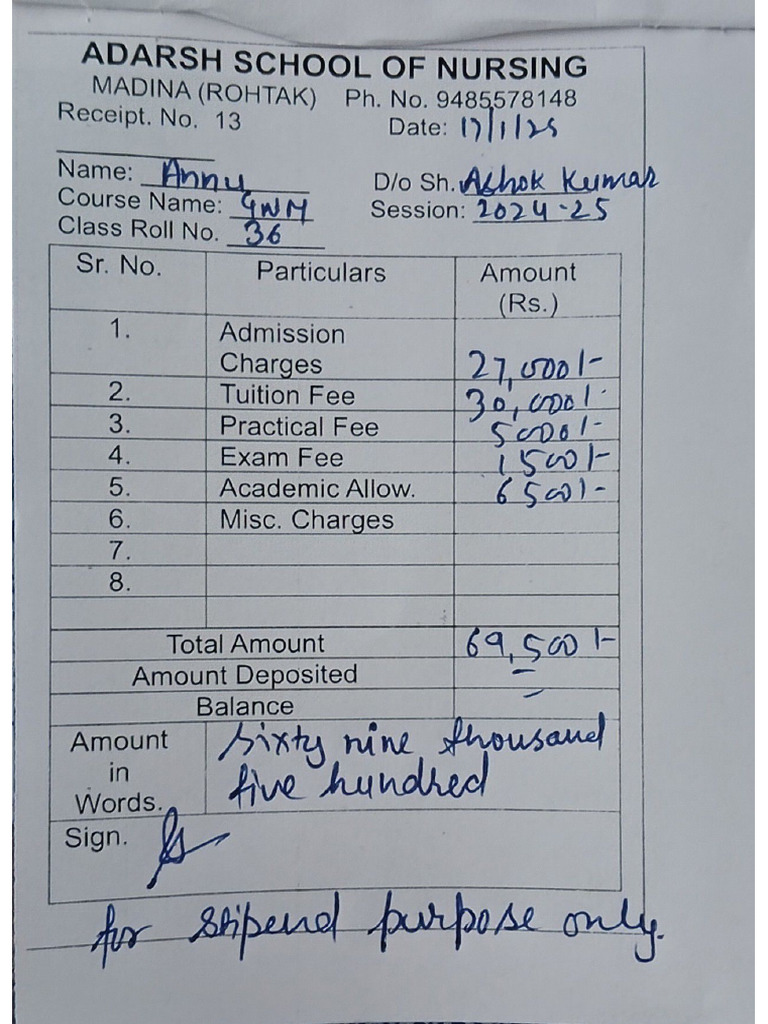 ADARSH SCHOOL OF NURSING
MADINA (ROHTAK) Ph. No. 9485578148
Receipt. No. 13 Date: 17/1/25
Name: Annu D/o Sh. Ashok Kumar
Course Name: GNM Session: 2024-25
Class Roll No. 36
Sr. No. Particulars Amount (Rs.)
1. Admission Charges 27,000/-
2. Tuition Fee 30,000/-
3. Practical Fee 5000/-
4. Exam Fee 1500/-
5. Academic Allow. 6500/-
6. Misc. Charges
7.
8.
Total Amount 69,500/-
Amount Deposited =
Balance -
Amount in Words. Sixty nine thousand
five hundred
Sign.
for stipend purpose only.